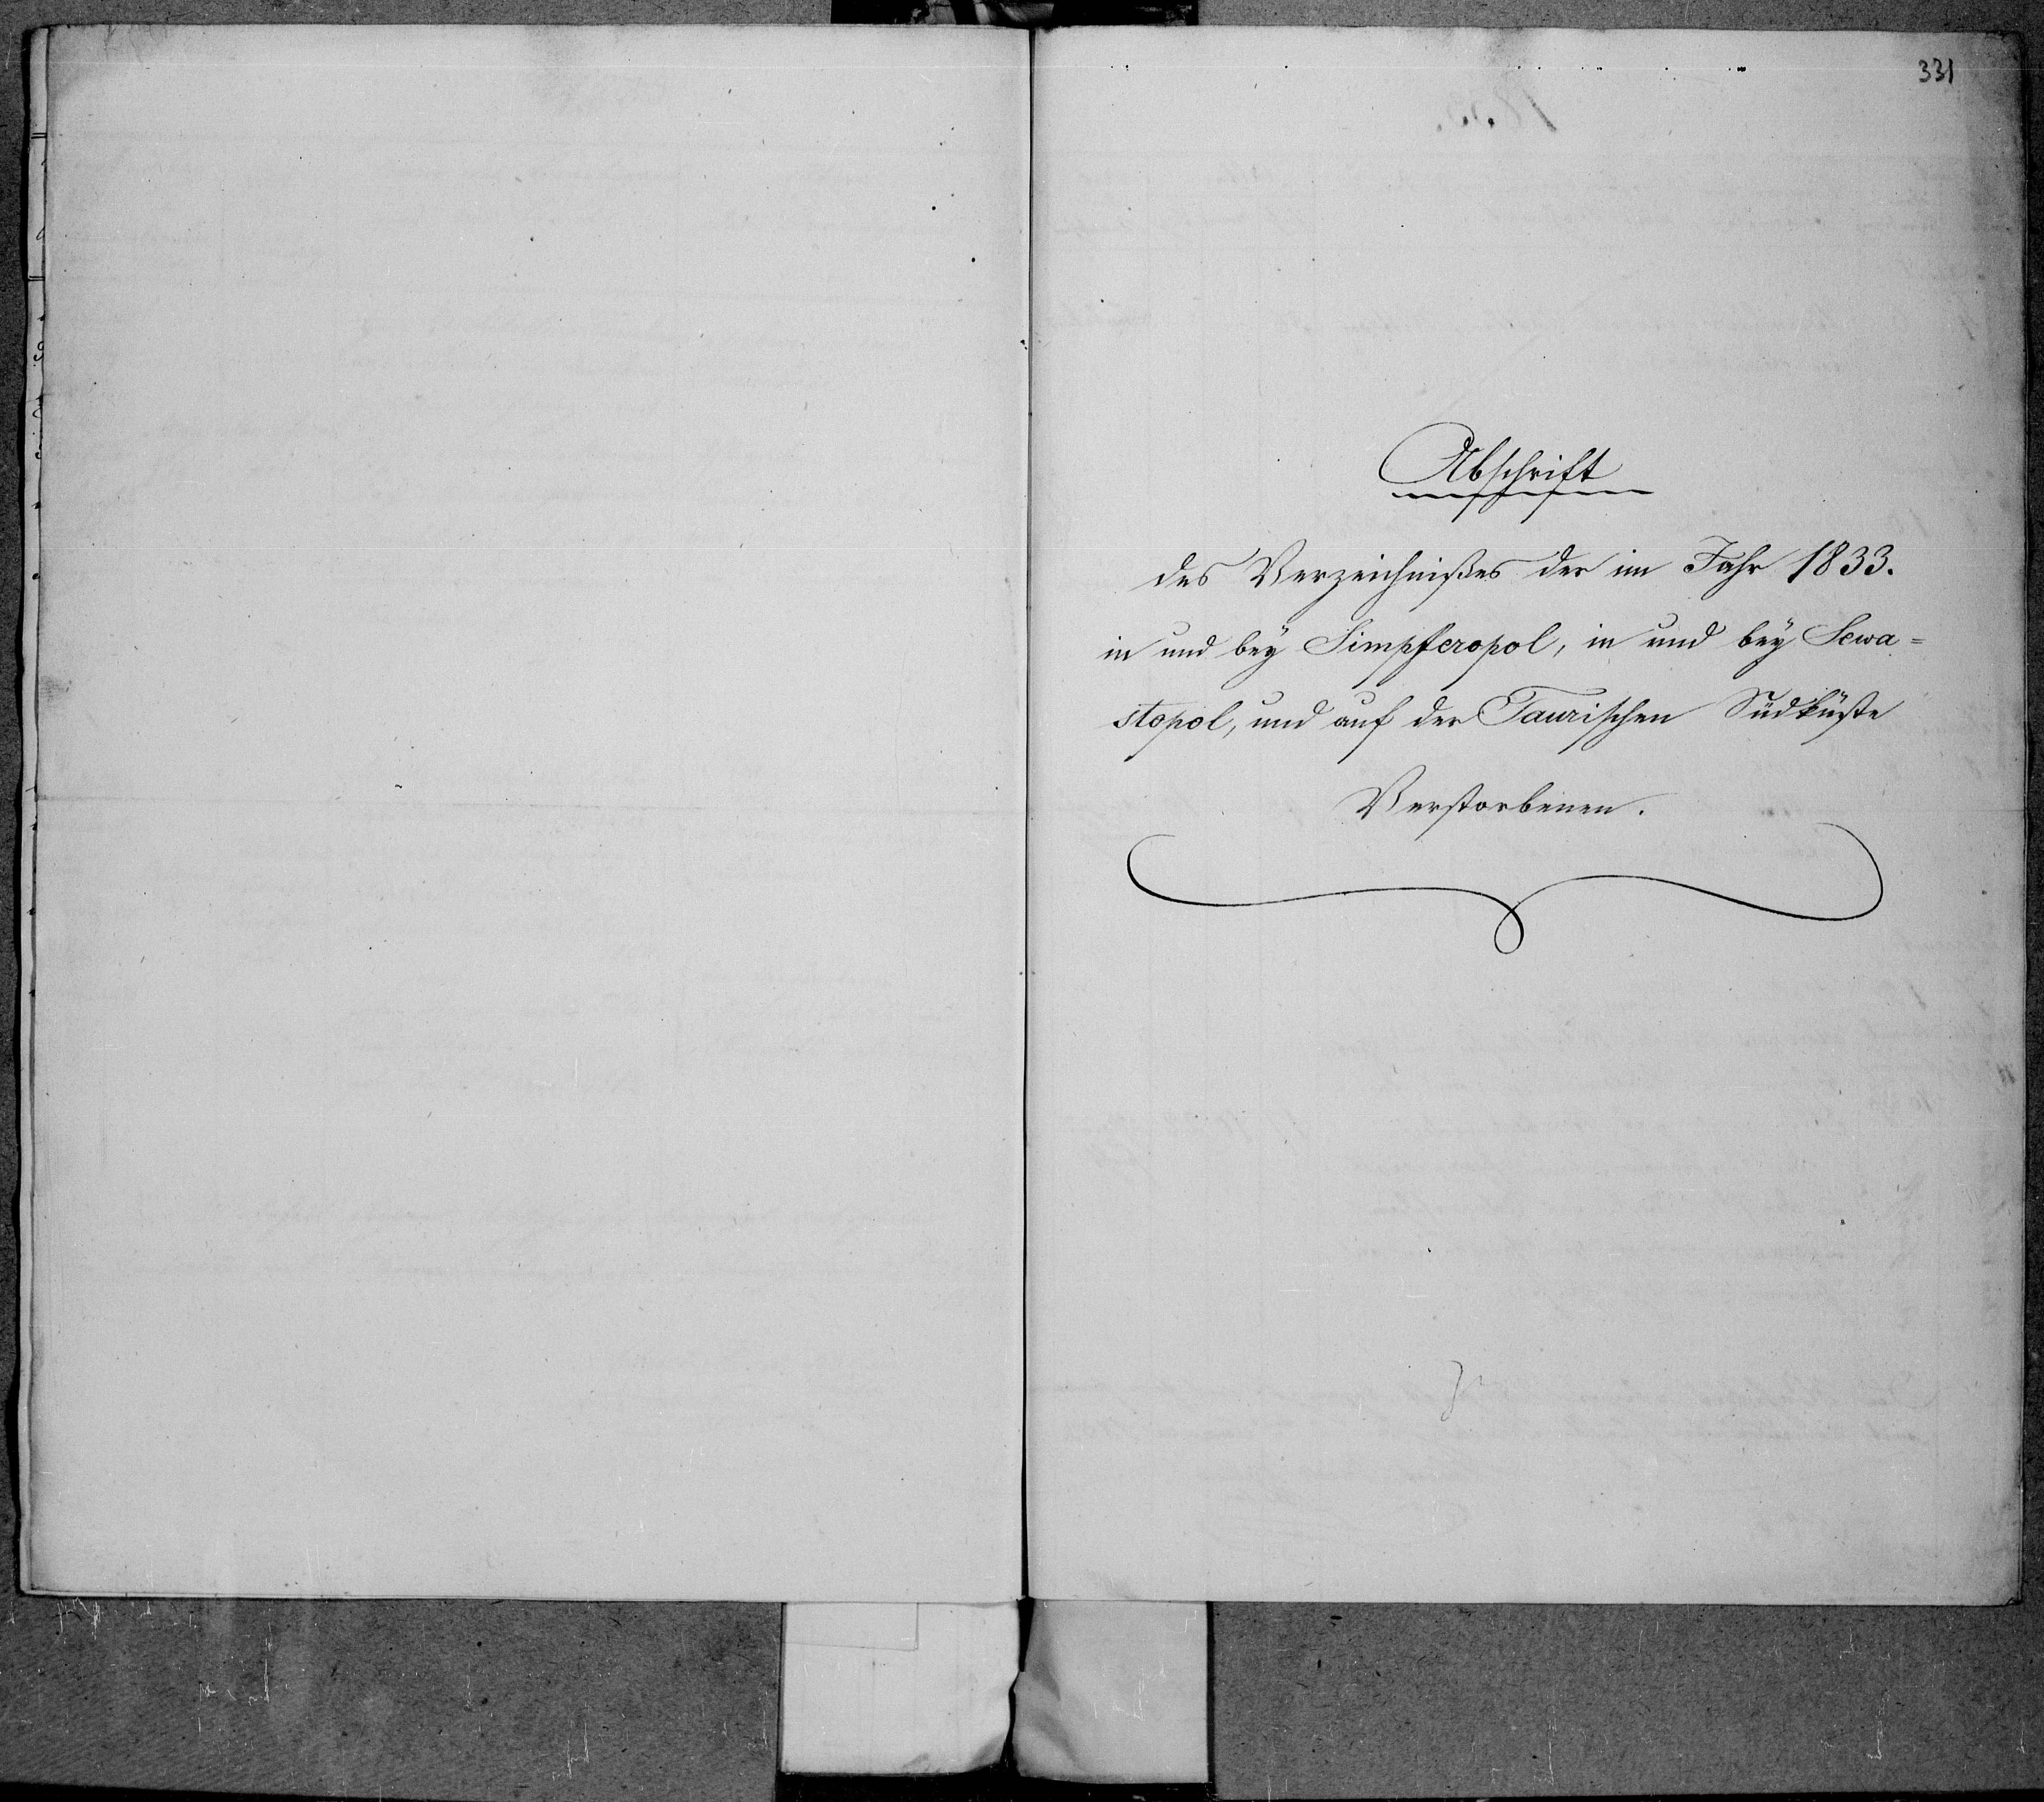 331
Abschrift
des Verzeichnißes der im Jahr 1833.
in und bey Simpferopol, in und bey Sewa=
stopol, und auf der Taurischen Südküste
Verstorbenen.